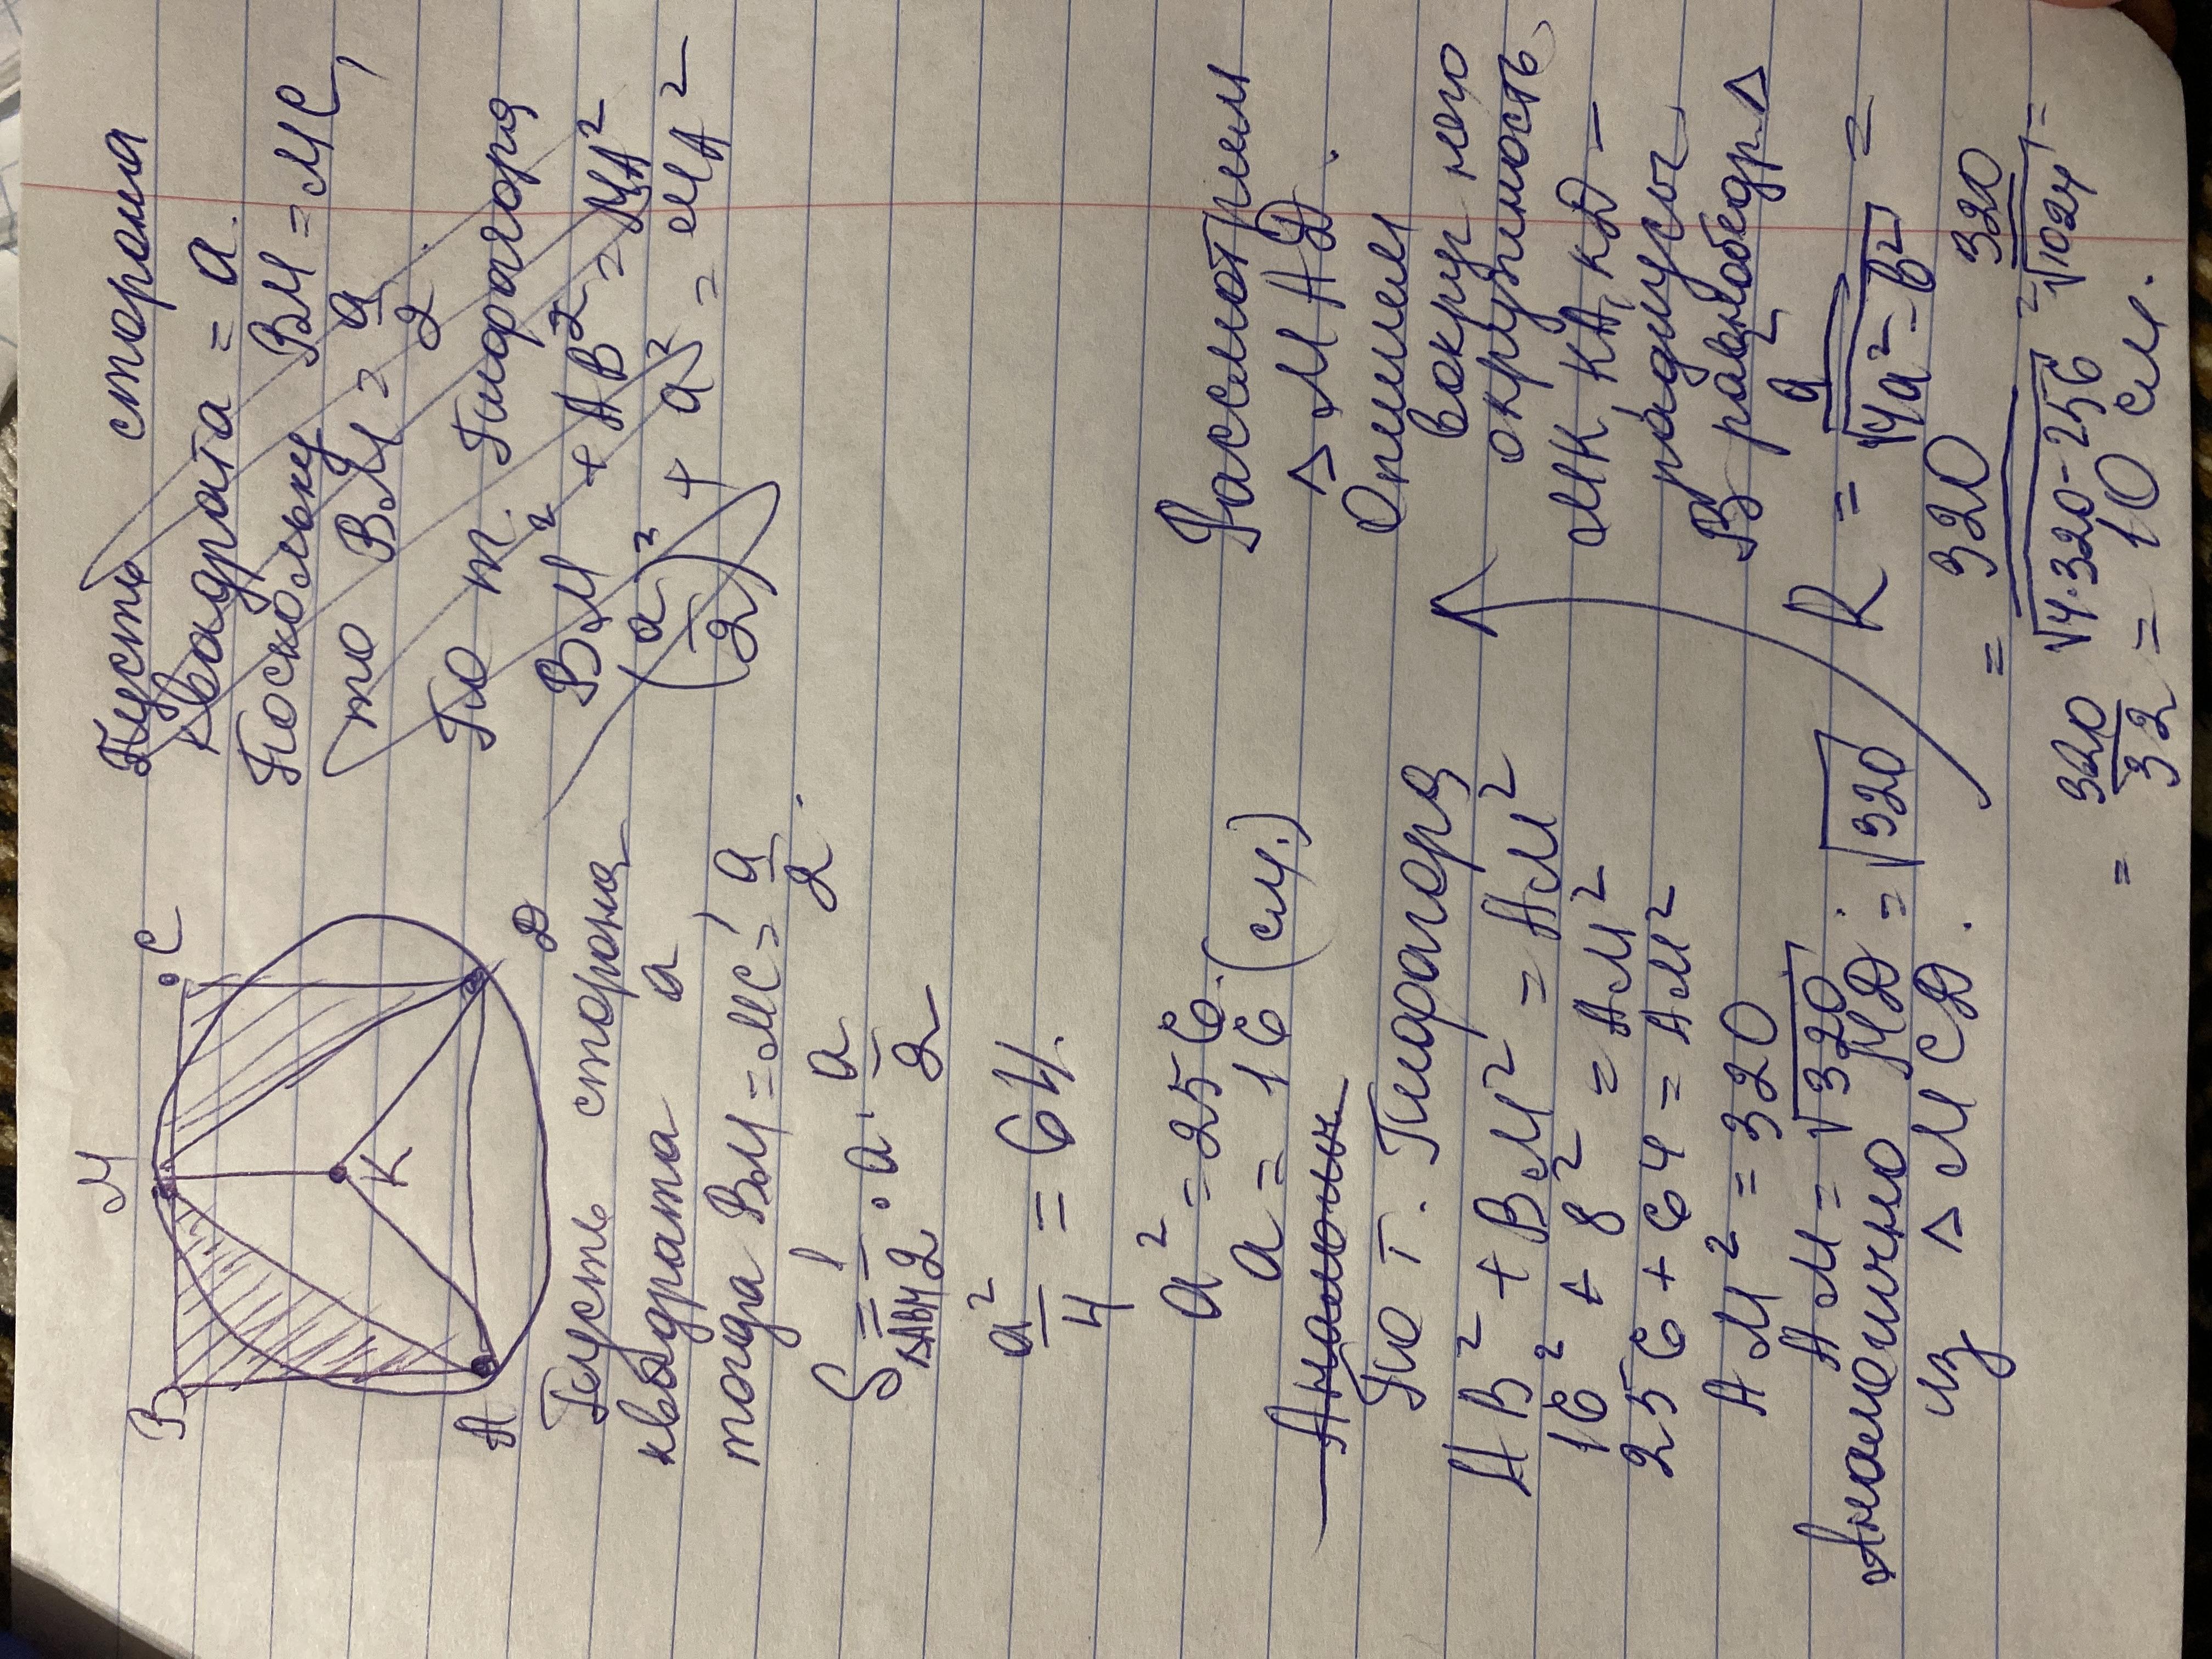 В М С
К
А D
Пусть сторона
квадрата a
тогда BM = MC = a/2.
S ΔABM = 1/2 · a · a/2
a²/4 = 64.
a² = 256.
a = 16 (см.)
По т. Пифагора
AB² + BM² = AM²
16² + 8² = AM²
256 + 64 = AM²
AM² = 320
AM = √320.
Аналогично MD = √320
из Δ MCD.
Пусть сторона
квадрата = a.
Поскольку BM = MC,
то BM = a/2.
По т. Пифрагора
BM² + AB² = MA²
(a/2)² + a² = MA²
Рассмотрим
Δ MAD.
Опишем
вокруг него
окружность
MK, KA, KD –
радиусы
В равнобедр. Δ
R = a²/√4a² – b² =
= 320/√4·320-256 = 320/√1024 =
= 320/32 = 10 см.